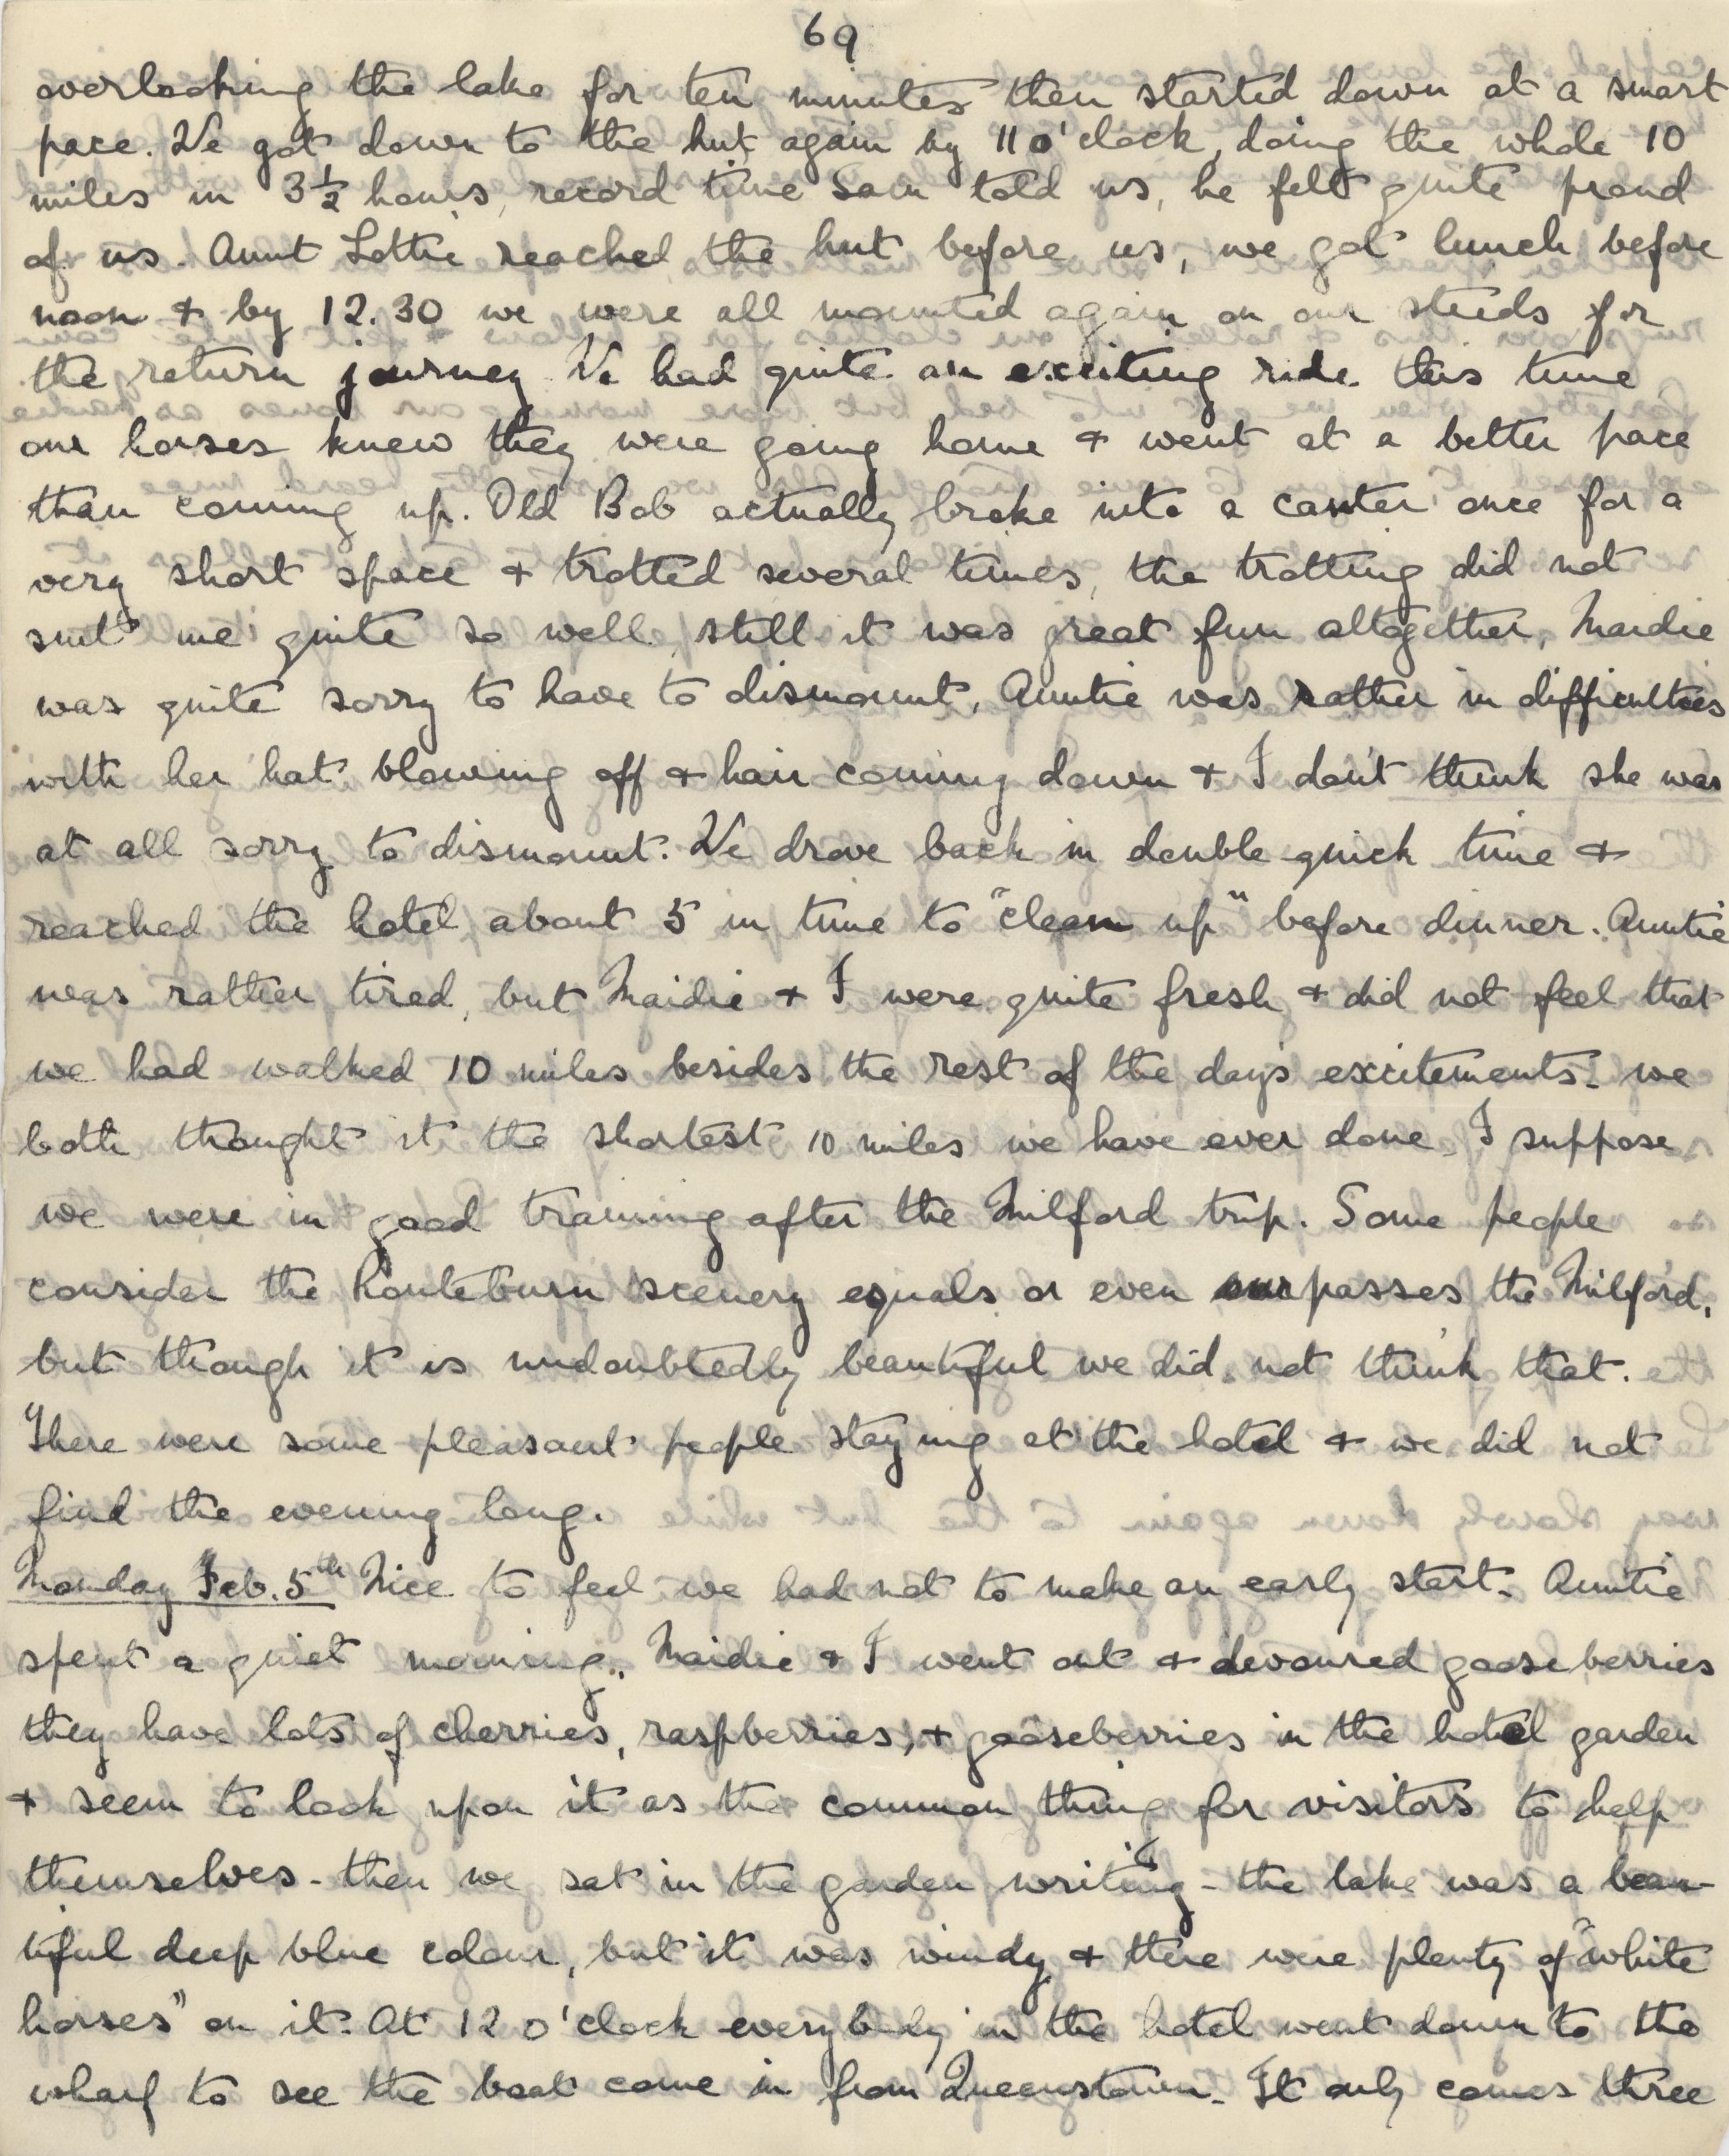 69
overlooking the lake for ten minutes then started down at a smart
pace. We got down to the hut again by 11 o'clock, doing the whole 10
miles in 3½ hours, record time Sam told us, he felt quite proud
of us. Aunt Lottie reached the hut before us, we got lunch before
noon & by 12.30 we were all mounted again on our steeds for
the return journey. We had quite an exciting ride this time
our horses knew they were going home & went at a better pace
than coming up. Old Bob actually broke into a canter once for a
very short space & trotted several times, the trotting did not
suit me quite so well, still it was great fun altogether, Maidie
was quite sorry to have to dismount, Auntie was rather in difficulties
with her hat blowing off & hair coming down & I don't think she was
at all sorry to dismount. We drove back in double quick time &
reached the hotel about 5 in time to "clean up" before dinner. Auntie
was rather tired, but Maidie & I were quite fresh & did not feel that
we had walked 10 miles besides the rest of the day's excitements - we
both thought it the shortest 10 miles we have ever done, I suppose
we were in good training after the Milford trip. Some people
consider the Routeburn scenery equals or even surpasses the Milford,
but though it is undoubtedly beautiful we did not think that.
There were some pleasant people staying at the hotel & we did not
find the evening long.
Monday Feb. 5th Nice to feel we had not to make an early start - Auntie
spent a quiet morning, Maidie & I went out & devoured gooseberries
they have lots of cherries, raspberries, & gooseberries in the hotel garden
& seem to look upon it as the common thing for visitors to help
themselves - then we sat in the garden writing - the lake was a beau-
tiful deep blue colour, but it was windy & there were plenty of "white
horses" on it. At 12 o'clock everybody in the hotel went down to the
wharf to see the boat come in from Queenstown - It only comes three